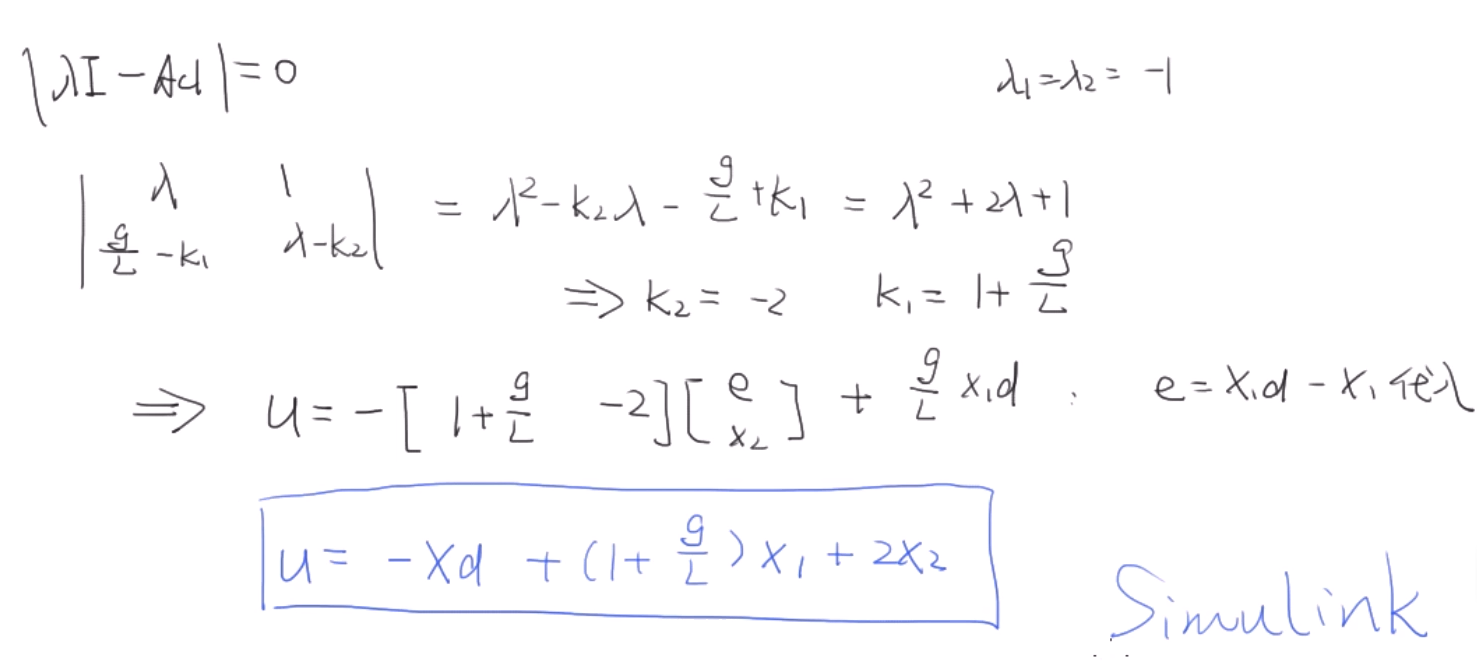 |λI - Acl| = 0 λ₁ = λ₂ = -1
| λ 1 |
| g/L - k₁ λ - k₂ | = λ² - k₂λ - g/L + k₁ = λ² + 2λ + 1
⇒ k₂ = -2 k₁ = 1 + g/L
⇒ u = -[ 1 + g/L -2 ][ e x₂ ] + g/L x₁d . e = x₁d - x₁ 代入
u = -xd + (1 + g/L) x₁ + 2x₂
Simulink